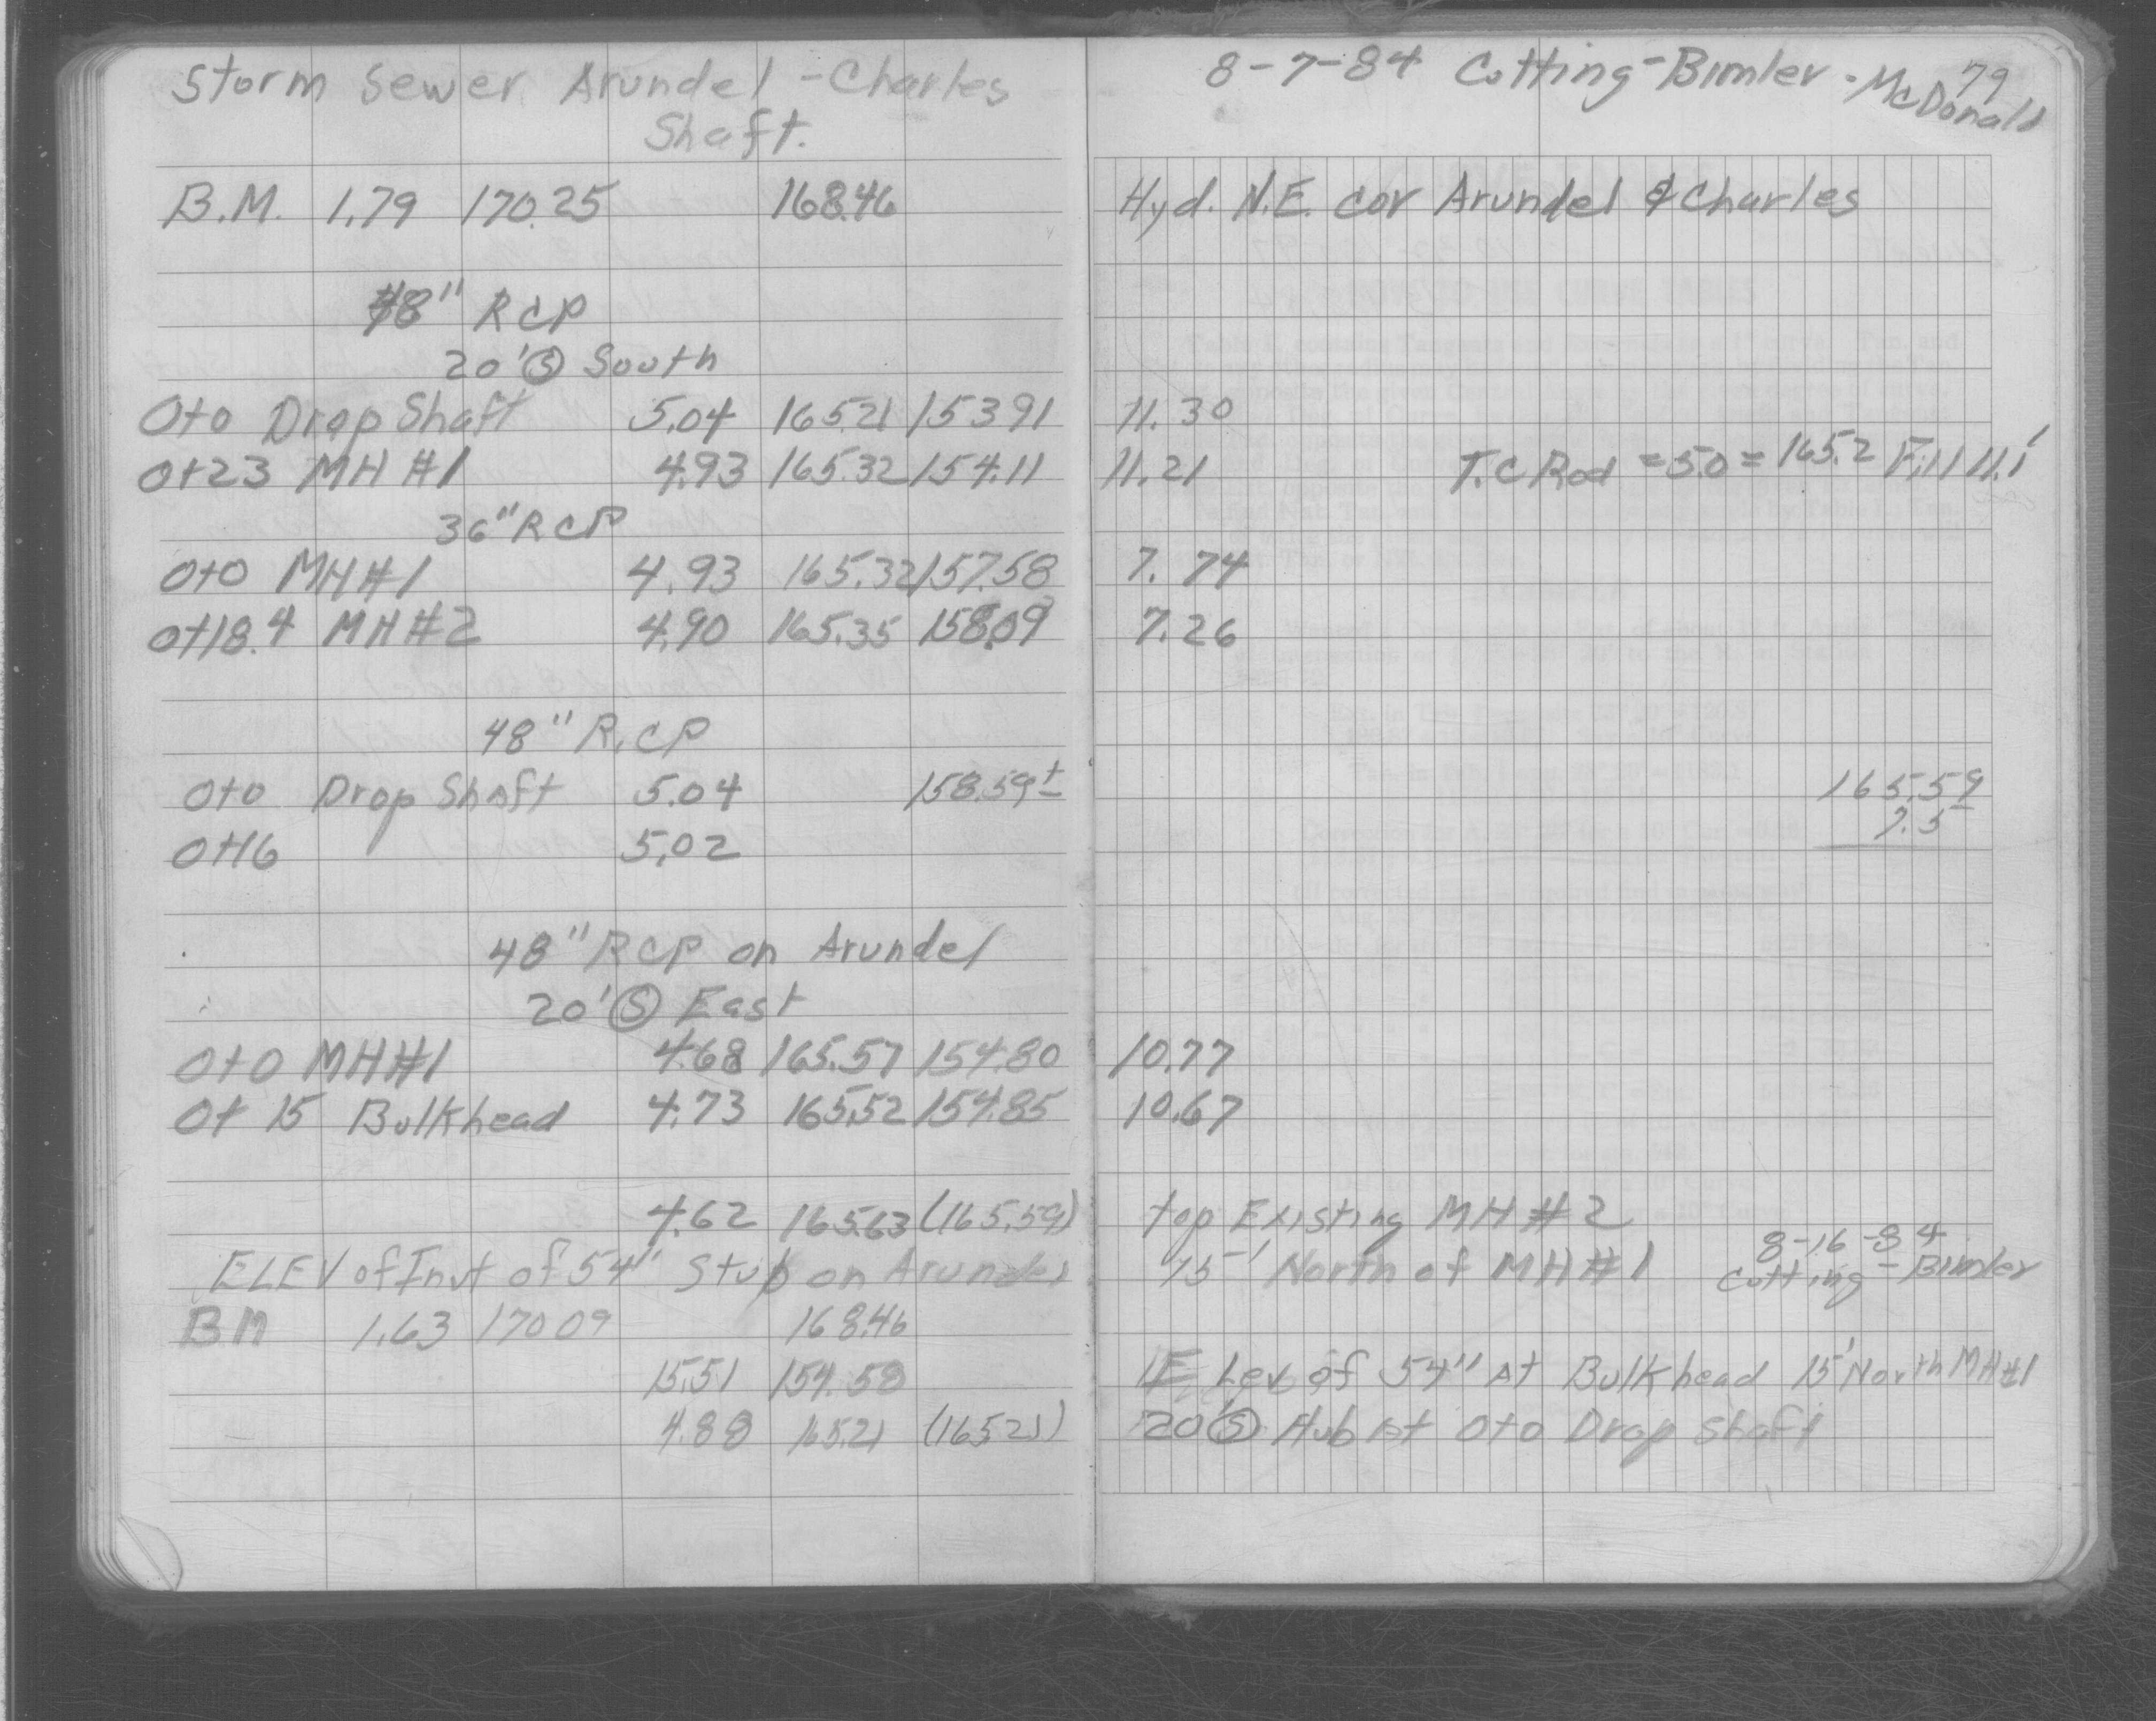 Storm Sewer Arundel - Charles
Shaft.
B.M. 1.79 170.25 168.46
48" RCP
20' Ⓢ South
0+0 Drop Shaft 5.04 165.21 153.91
0+23 MH #1 4.93 165.32 154.11
36" RCP
0+0 MH#1 4.93 165.32 157.58
0+18.4 MH#2 4.90 165.35 158.09
48" R.CP
0+0 Drop Shaft 5.04 158.59±
0+16 5.02
48" RCP on Arundel
20' Ⓢ East
0+0 MH#1 4.68 165.57 154.80
0+15 Bulkhead 4.73 165.52 154.85
4.62 165.63 (165.59)
ELEV of Invt of 54" Stub on Arundel
BM 1.63 170 09 168.46
15.51 154.58
4.88 165.21 (165 21)
79
8-7-84 Cotting-Bimler-McDonald
Hyd. N.E. cor Arundel & Charles
11.30
11.21 T.C Rod = 5.0 = 165.2 Fill 11.1'
7.74
7.26
165.59
7.5
10.77
10.67
top Existing MH #2
15' North of MH#1
8-16-84
Cotting - Bimler
Lev of 54" At Bulkhead 15' North MH#1
20' Ⓢ Hub At 0+0 Drop Shaft